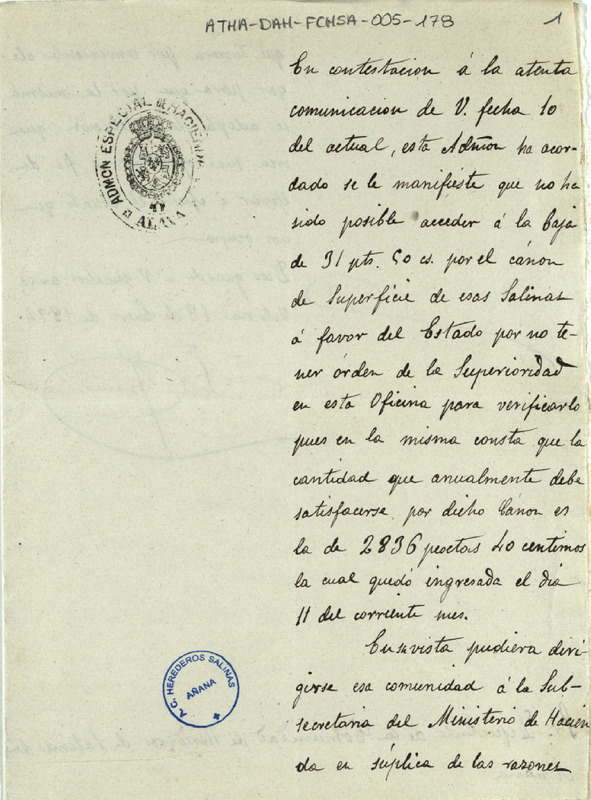 ATHA-DAH-FCHSA-005-178
1
ADMON ESPECIAL DE HACIENDA
ALAVA
En contestacion á la atenta
comunicacion de V. fecha 10
del actual, esta Admon ha acor-
dado se le manifieste que no ha
sido posible acceder á la baja
de 31 pts. 50 cs. por el cánon
de Superficie de esas Salinas
á favor del Estado por no te-
ner órden de la Superioridad
en esta Oficina para verificarlo
pues en la misma consta que la
cantidad que anualmente debe
satisfacerse por dicho Cánon es
la de 2836 pesetas 40 centimos
la cual quedó ingresada el dia
11 del corriente mes.
En su vista pudiera diri-
girse esa comunidad á la Sub-
secretaria del Ministerio de Hacien
da en súplica de las razones
C. HEREDEROS SALINAS
AÑANA